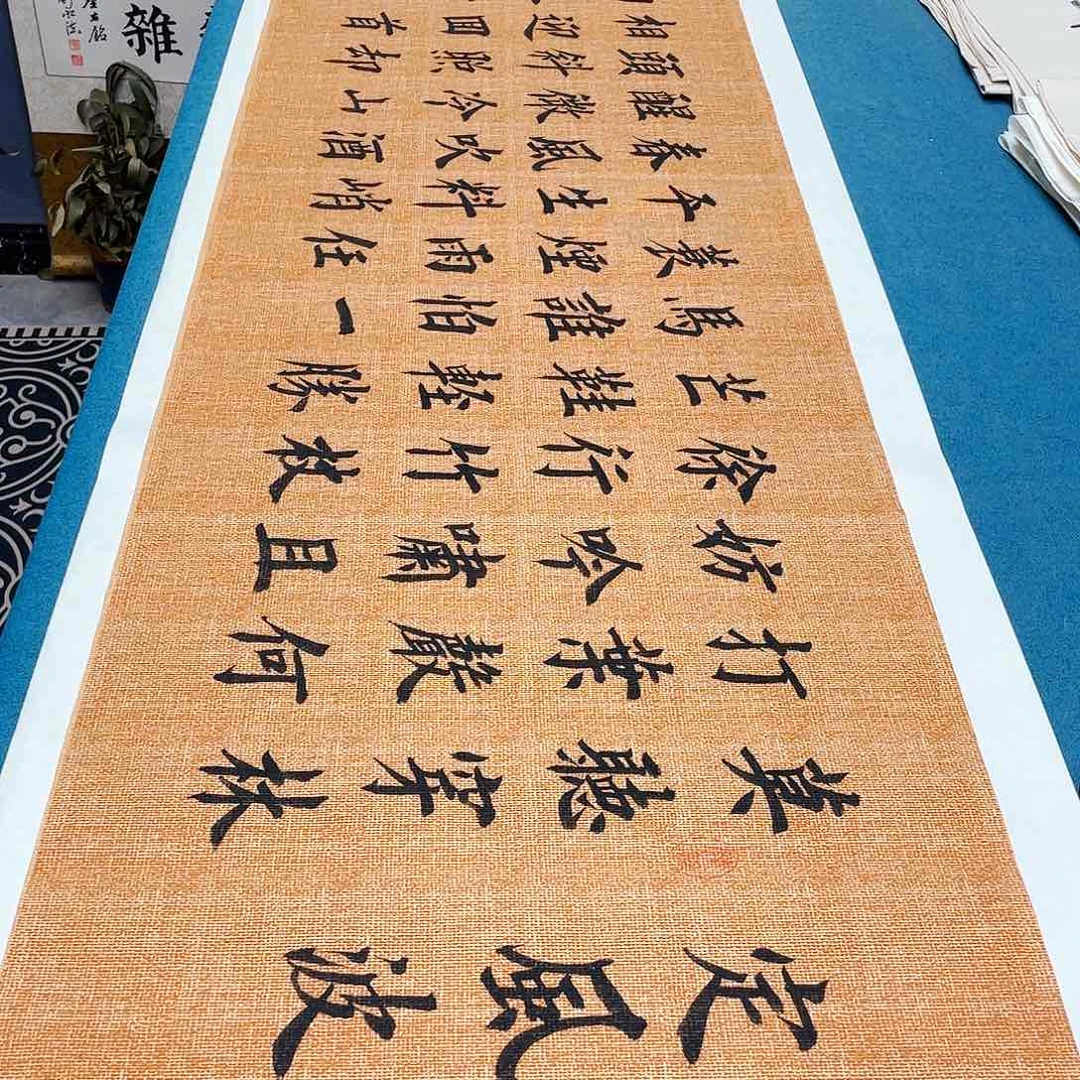 定風波
莫聽穿林
打葉聲何
妨吟嘯且
徐行竹杖
芒鞋輕勝
馬誰怕一
蓑煙雨任
平生料峭
春風吹酒
醒微冷山
頭斜照却
相迎回首
雜